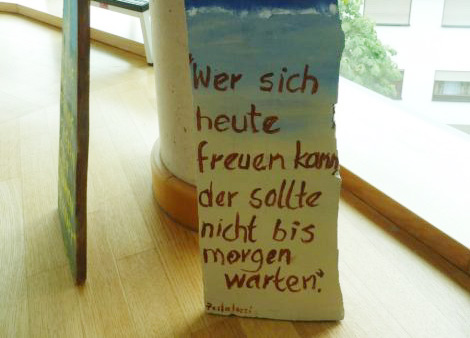 "Wer sich
heute
freuen kann
der sollte
nicht bis
morgen
warten."
Pestalozzi